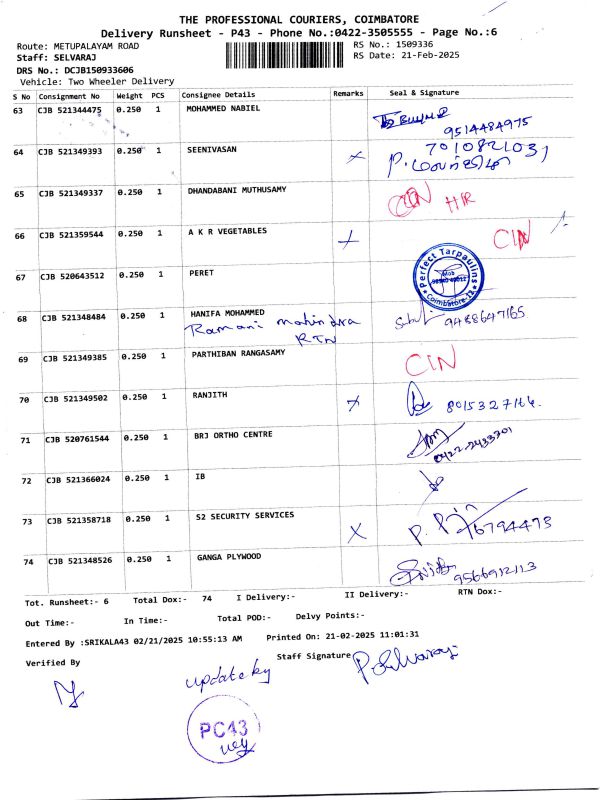 THE PROFESSIONAL COURIERS, COIMBATORE
Delivery Runsheet - P43 - Phone No.:0422-3505555 - Page No.:6
Route: METUPALAYAM ROAD RS No.: 1509336
Staff: SELVARAJ RS Date: 21-Feb-2025
DRS No.: DCJB150933606
Vehicle: Two Wheeler Delivery
S No Consignment No Weight PCS Consignee Details Remarks Seal & Signature
63 CJB 521344475 0.250 1 MOHAMMED NABIEL
9514484975
64 CJB 521349393 0.250 1 SEENIVASAN
7010821031
65 CJB 521349337 0.250 1 DHANDABANI MUTHUSAMY
CIN HIR
66 CJB 521359544 0.250 1 A K R VEGETABLES
CIN
67 CJB 520643512 0.250 1 PERET
Perfect Tarpaulins
Mob
Coimbatore-12
68 CJB 521348484 0.250 1 HANIFA MOHAMMED
Ramani mahindra 9488647165
RTN
69 CJB 521349385 0.250 1 PARTHIBAN RANGASAMY
CIN
70 CJB 521349502 0.250 1 RANJITH
8015327164.
71 CJB 520761544 0.250 1 BRJ ORTHO CENTRE
0422-2433201
72 CJB 521366024 0.250 1 IB
73 CJB 521358718 0.250 1 S2 SECURITY SERVICES
74 CJB 521348526 0.250 1 GANGA PLYWOOD
9566912113
Tot. Runsheet:- 6 Total Dox:- 74 I Delivery:- II Delivery:- RTN Dox:-
Out Time:- In Time:- Total POD:- Delvy Points:-
Entered By :SRIKALA43 02/21/2025 10:55:13 AM Printed On: 21-02-2025 11:01:31
Verified By Staff Signature P. Selvaraj
update by
PC43